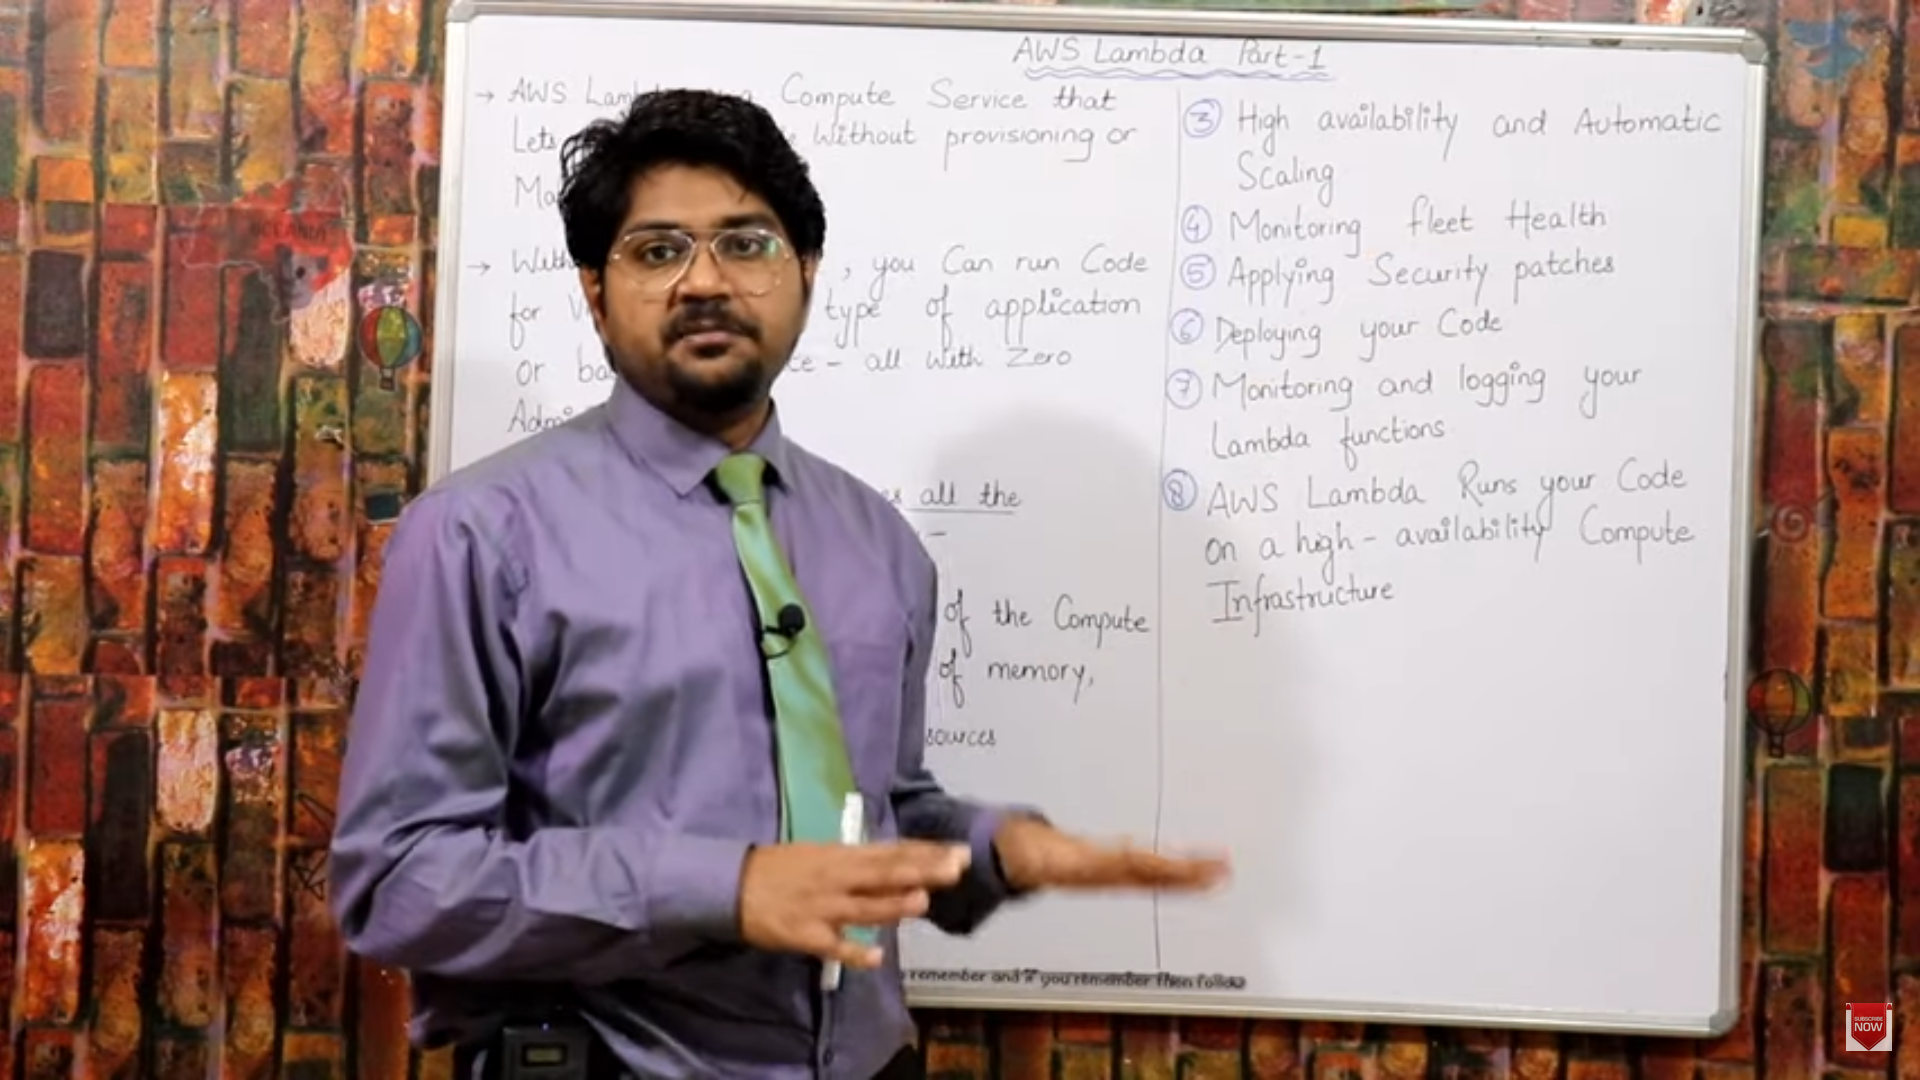 AWS Lambda Part-1
→ AWS Compute Service that
Lets Without provisioning or
→ With , you Can run Code
for type of application
or - all With Zero
all the
of the Compute
of memory,
③ High availability and Automatic
Scaling
④ Monitoring fleet Health
⑤ Applying Security patches
⑥ Deploying your Code
⑦ Monitoring and logging your
Lambda functions
⑧ AWS Lambda Runs your Code
on a high - availability Compute
Infrastructure
remember and if you remember then follow
OCEANIA
SUBSCRIBE
NOW